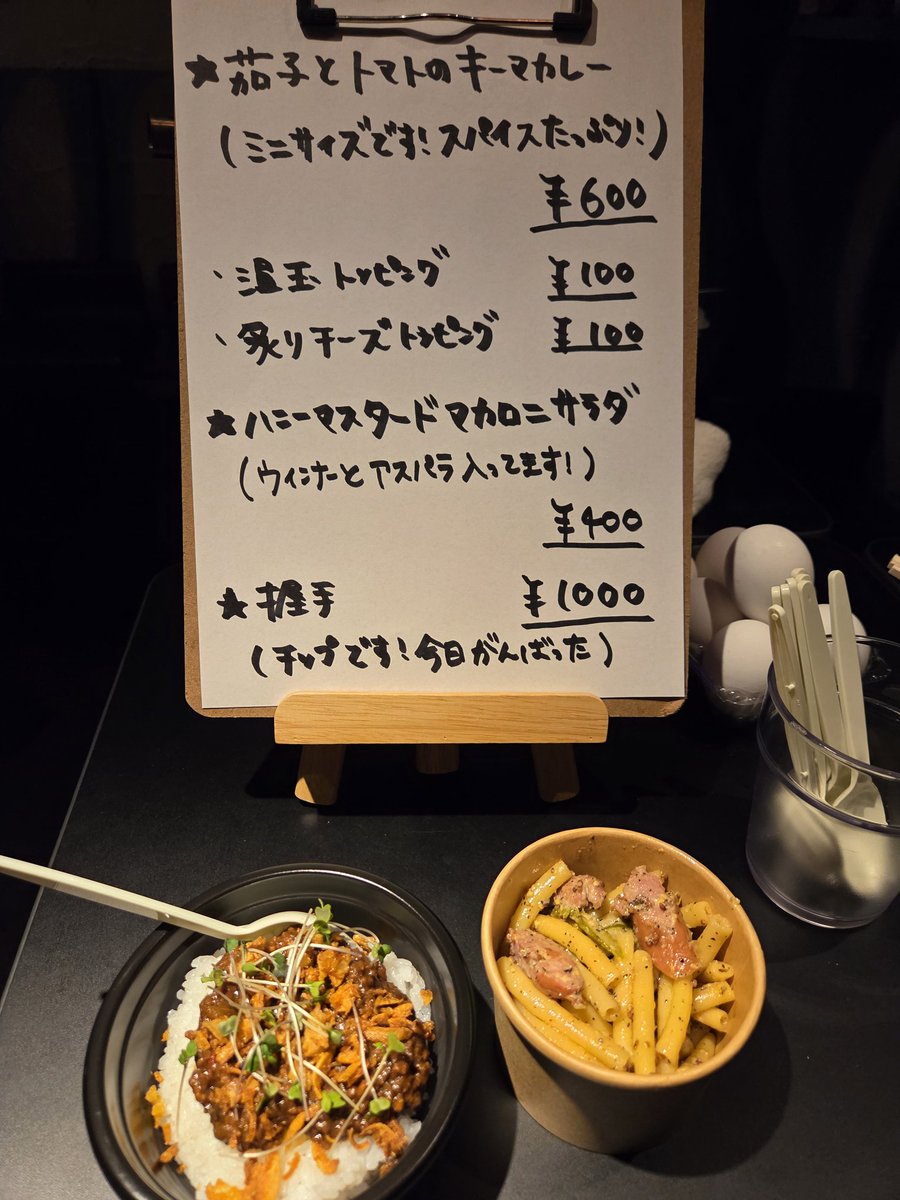 ★茄子とトマトのキーマカレー
(ミニサイズです!スパイスたっぷり!)
¥600
・温玉トッピング ¥100
・炙りチーズトッピング ¥100
★ハニーマスタードマカロニサラダ
(ウィンナーとアスパラ入ってます!)
¥400
★握手 ¥1000
(チップです!今日がんばった)